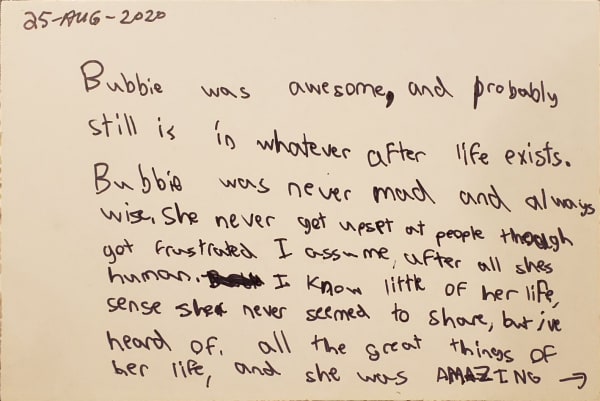 25-AUG-2020
Bubbie was awesome, and probably
still is in whatever after life exists.
Bubbie was never mad and always
wise. She never got upset at people though
got frustrated I assume, after all shes
human. I know little of her life,
sense she never seemed to share, but i've
heard of. all the great things of
her life, and she was AMAZING →